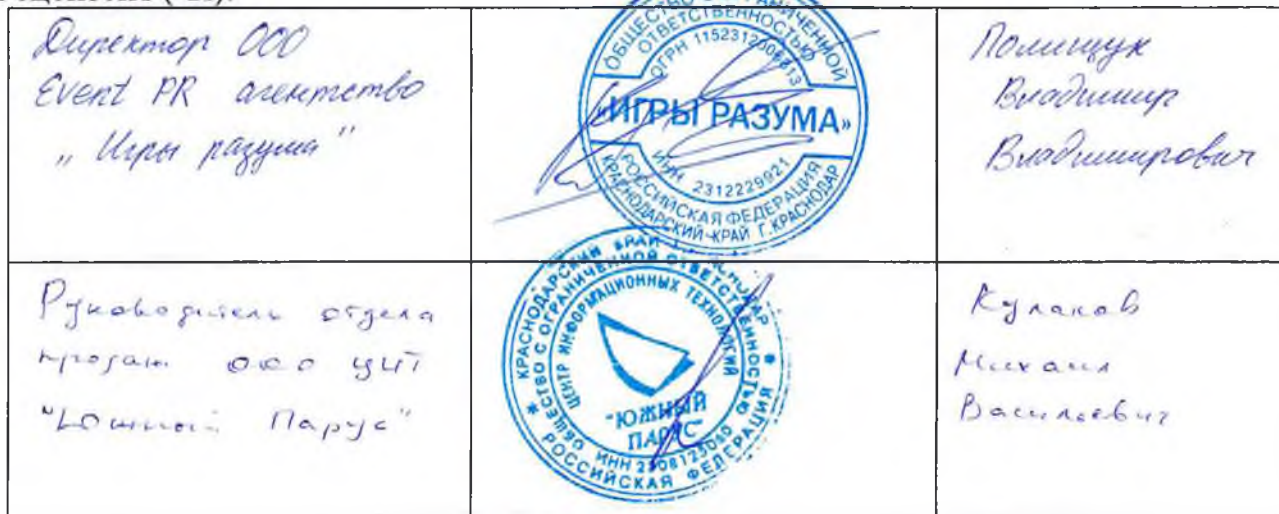 Директор ООО
Event PR агентство
„Игры разума"
ОБЩЕСТВО С ОГРАНИЧЕННОЙ
ОТВЕТСТВЕННОСТЬЮ
ОГРН
«ИГРЫ РАЗУМА»
ИНН 2312229921
РОССИЙСКАЯ ФЕДЕРАЦИЯ
КРАСНОДАРСКИЙ КРАЙ Г. КРАСНОДАР
Полищук
Владимир
Владимирович
Руководитель отдела
продаж ООО ЦИТ
"Южный Парус"
КРАСНОДАРСКИЙ КРАЙ
ОБЩЕСТВО С ОГРАНИЧЕННОЙ ОТВЕТСТВЕННОСТЬЮ
ЦЕНТР ИНФОРМАЦИОННЫХ ТЕХНОЛОГИЙ
"ЮЖНЫЙ
ПАРУС"
ИНН
РОССИЙСКАЯ ФЕДЕРАЦИЯ
Кулаков
Михаил
Васильевич